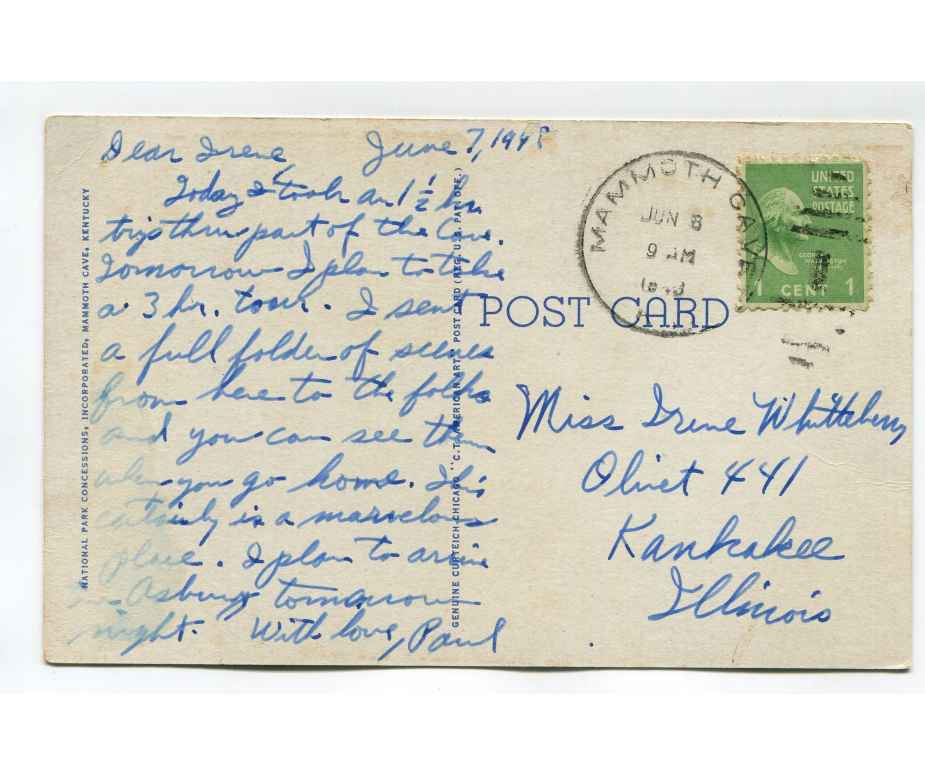 Dear Irene, June 7, 1948
Today I took an 1 1/2 hr
trip thru part of the Cave.
Tomorrow I plan to take
a 3 hr. tour. I sent
a full folder of scenes
from here to the folks
and you can see them
when you go home. This
certainly is a marvelous
place. I plan to arrive
in Asbury tomorrow
night. With love, Paul
NATIONAL PARK CONCESSIONS, INCORPORATED, MAMMOTH CAVE, KENTUCKY
GENUINE CURTEICH-CHICAGO "C.T. AMERICAN ART" POST CARD (REG. U.S. PAT. OFF.)
POST CARD
MAMMOTH CAVE
JUN 8
9 AM
UNITED
STATES
POSTAGE
GEORGE
WASHINGTON
1 CENT 1
Miss Irene Whitteberry
Olivet 441
Kankakee
Illinois